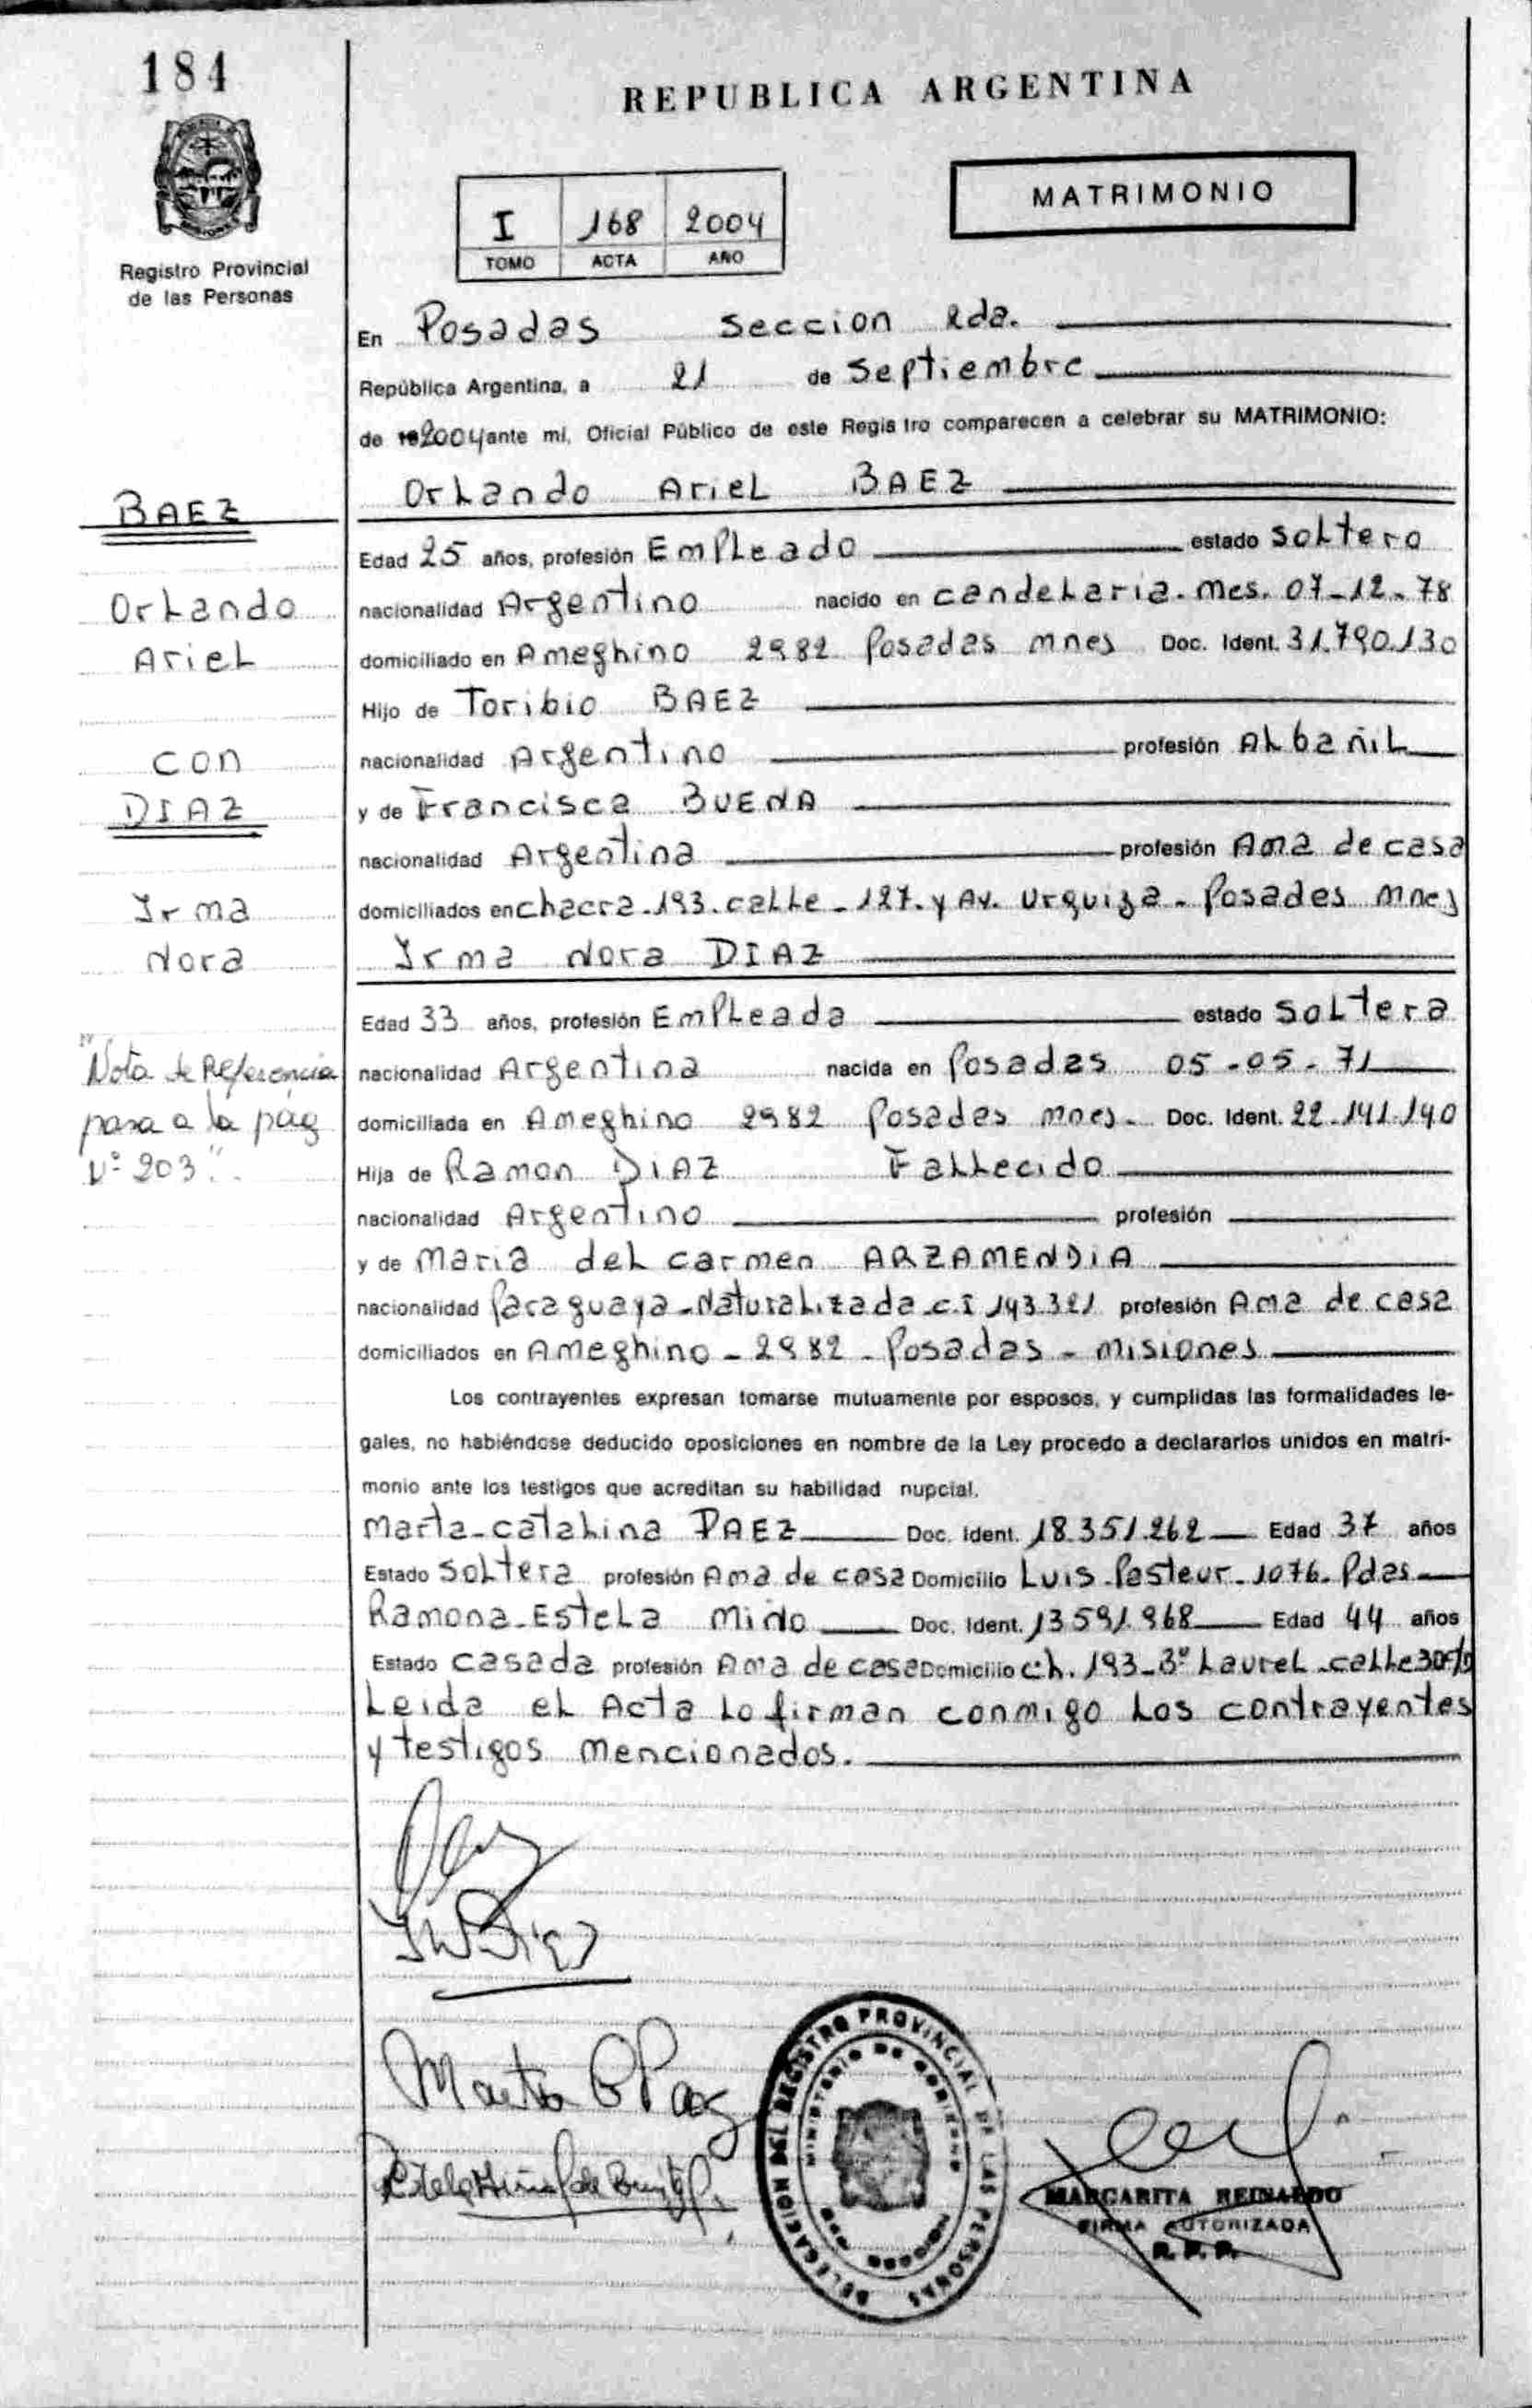 184
REPUBLICA ARGENTINA
MATRIMONIO
I 168 2004
TOMO ACTA AÑO
Registro Provincial
de las Personas
En Posadas Seccion 2da.
República Argentina, a 21 de Septiembre
de 19 2004 ante mí, Oficial Público de este Registro comparecen a celebrar su MATRIMONIO:
Orlando Ariel BAEZ
BAEZ
Edad 25 años, profesión Empleado estado Soltero
Orlando
nacionalidad Argentino nacido en Candelaria. Mes. 07-12-78
Ariel
domiciliado en Ameghino 2982 Posadas mnes Doc. Ident. 31.790.130
Hijo de Toribio BAEZ
con
nacionalidad Argentino profesión Albañil
DIAZ
y de Francisca BUENA
nacionalidad Argentina profesión Ama de casa
Irma
domiciliados en chacra-193.calle-127.y Av. Urquiza-Posadas mnes
Nora
Irma Nora DIAZ
Edad 33 años, profesión Empleada estado Soltera
"Nota de Referencia
pasa a la pág
Nº 203".
nacionalidad Argentina nacida en Posadas 05-05-71
domiciliada en Ameghino 2982 Posadas mnes- Doc. Ident. 22.141.140
Hija de Ramon DIAZ Fallecido
nacionalidad Argentino profesión
y de Maria del carmen ARZAMENDIA
nacionalidad Paraguaya-Naturalizada c.i 143.321 profesión Ama de casa
domiciliados en Ameghino-2982-Posadas-misiones
Los contrayentes expresan tomarse mutuamente por esposos, y cumplidas las formalidades le-
gales, no habiéndose deducido oposiciones en nombre de la Ley procedo a declararlos unidos en matri-
monio ante los testigos que acreditan su habilidad nupcial.
Marta-catalina PAEZ Doc. Ident. 18.351.262 Edad 37 años
Estado Soltera profesión Ama de casa Domicilio Luis-Pasteur-1076-Pdas
Ramona-Estela Miño Doc. Ident. 13591.968 Edad 44 años
Estado casada profesión Ama de casa Domicilio ch. 193-3º Laurel-calle
Leida el Acta lo firman conmigo los contrayentes
y testigos mencionados.
Marta C Paez
DELEGACION DEL REGISTRO PROVINCIAL DE LAS PERSONAS
MINISTERIO DE GOBIERNO
MARGARITA REINALDO
FIRMA AUTORIZADA
R. P. P.